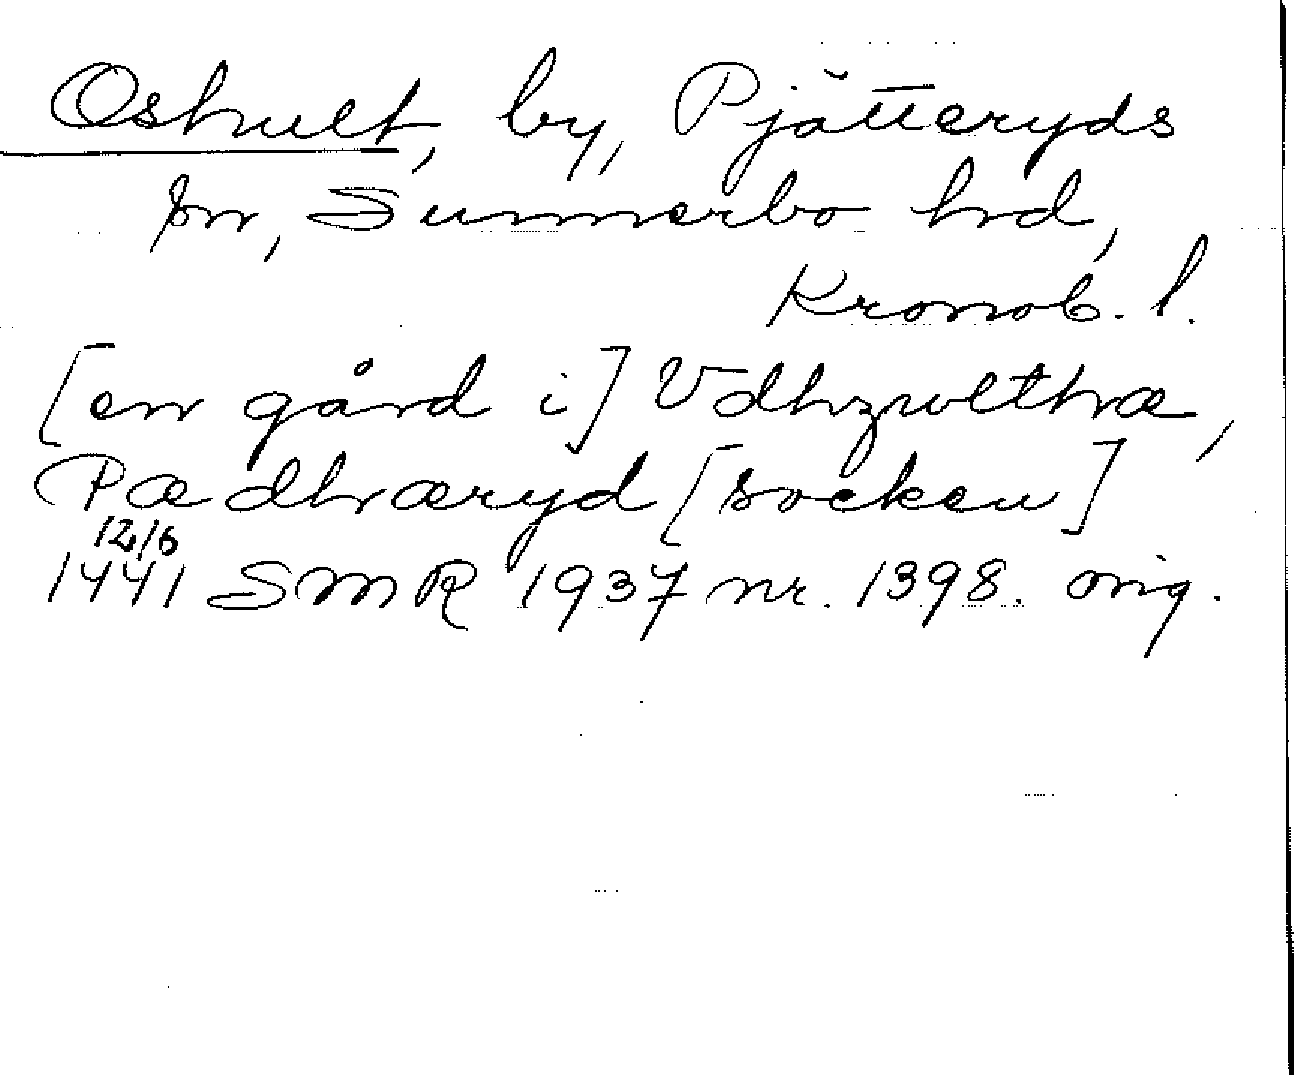 Oshult, by, Pjätteryds
sn, Sunnerbo hd,
Kronob. l.
[en gård i] Vdhzwlthæ,
Pædhræryd [socken]
12/6
1441 SMR 1937 nr. 1398. orig.